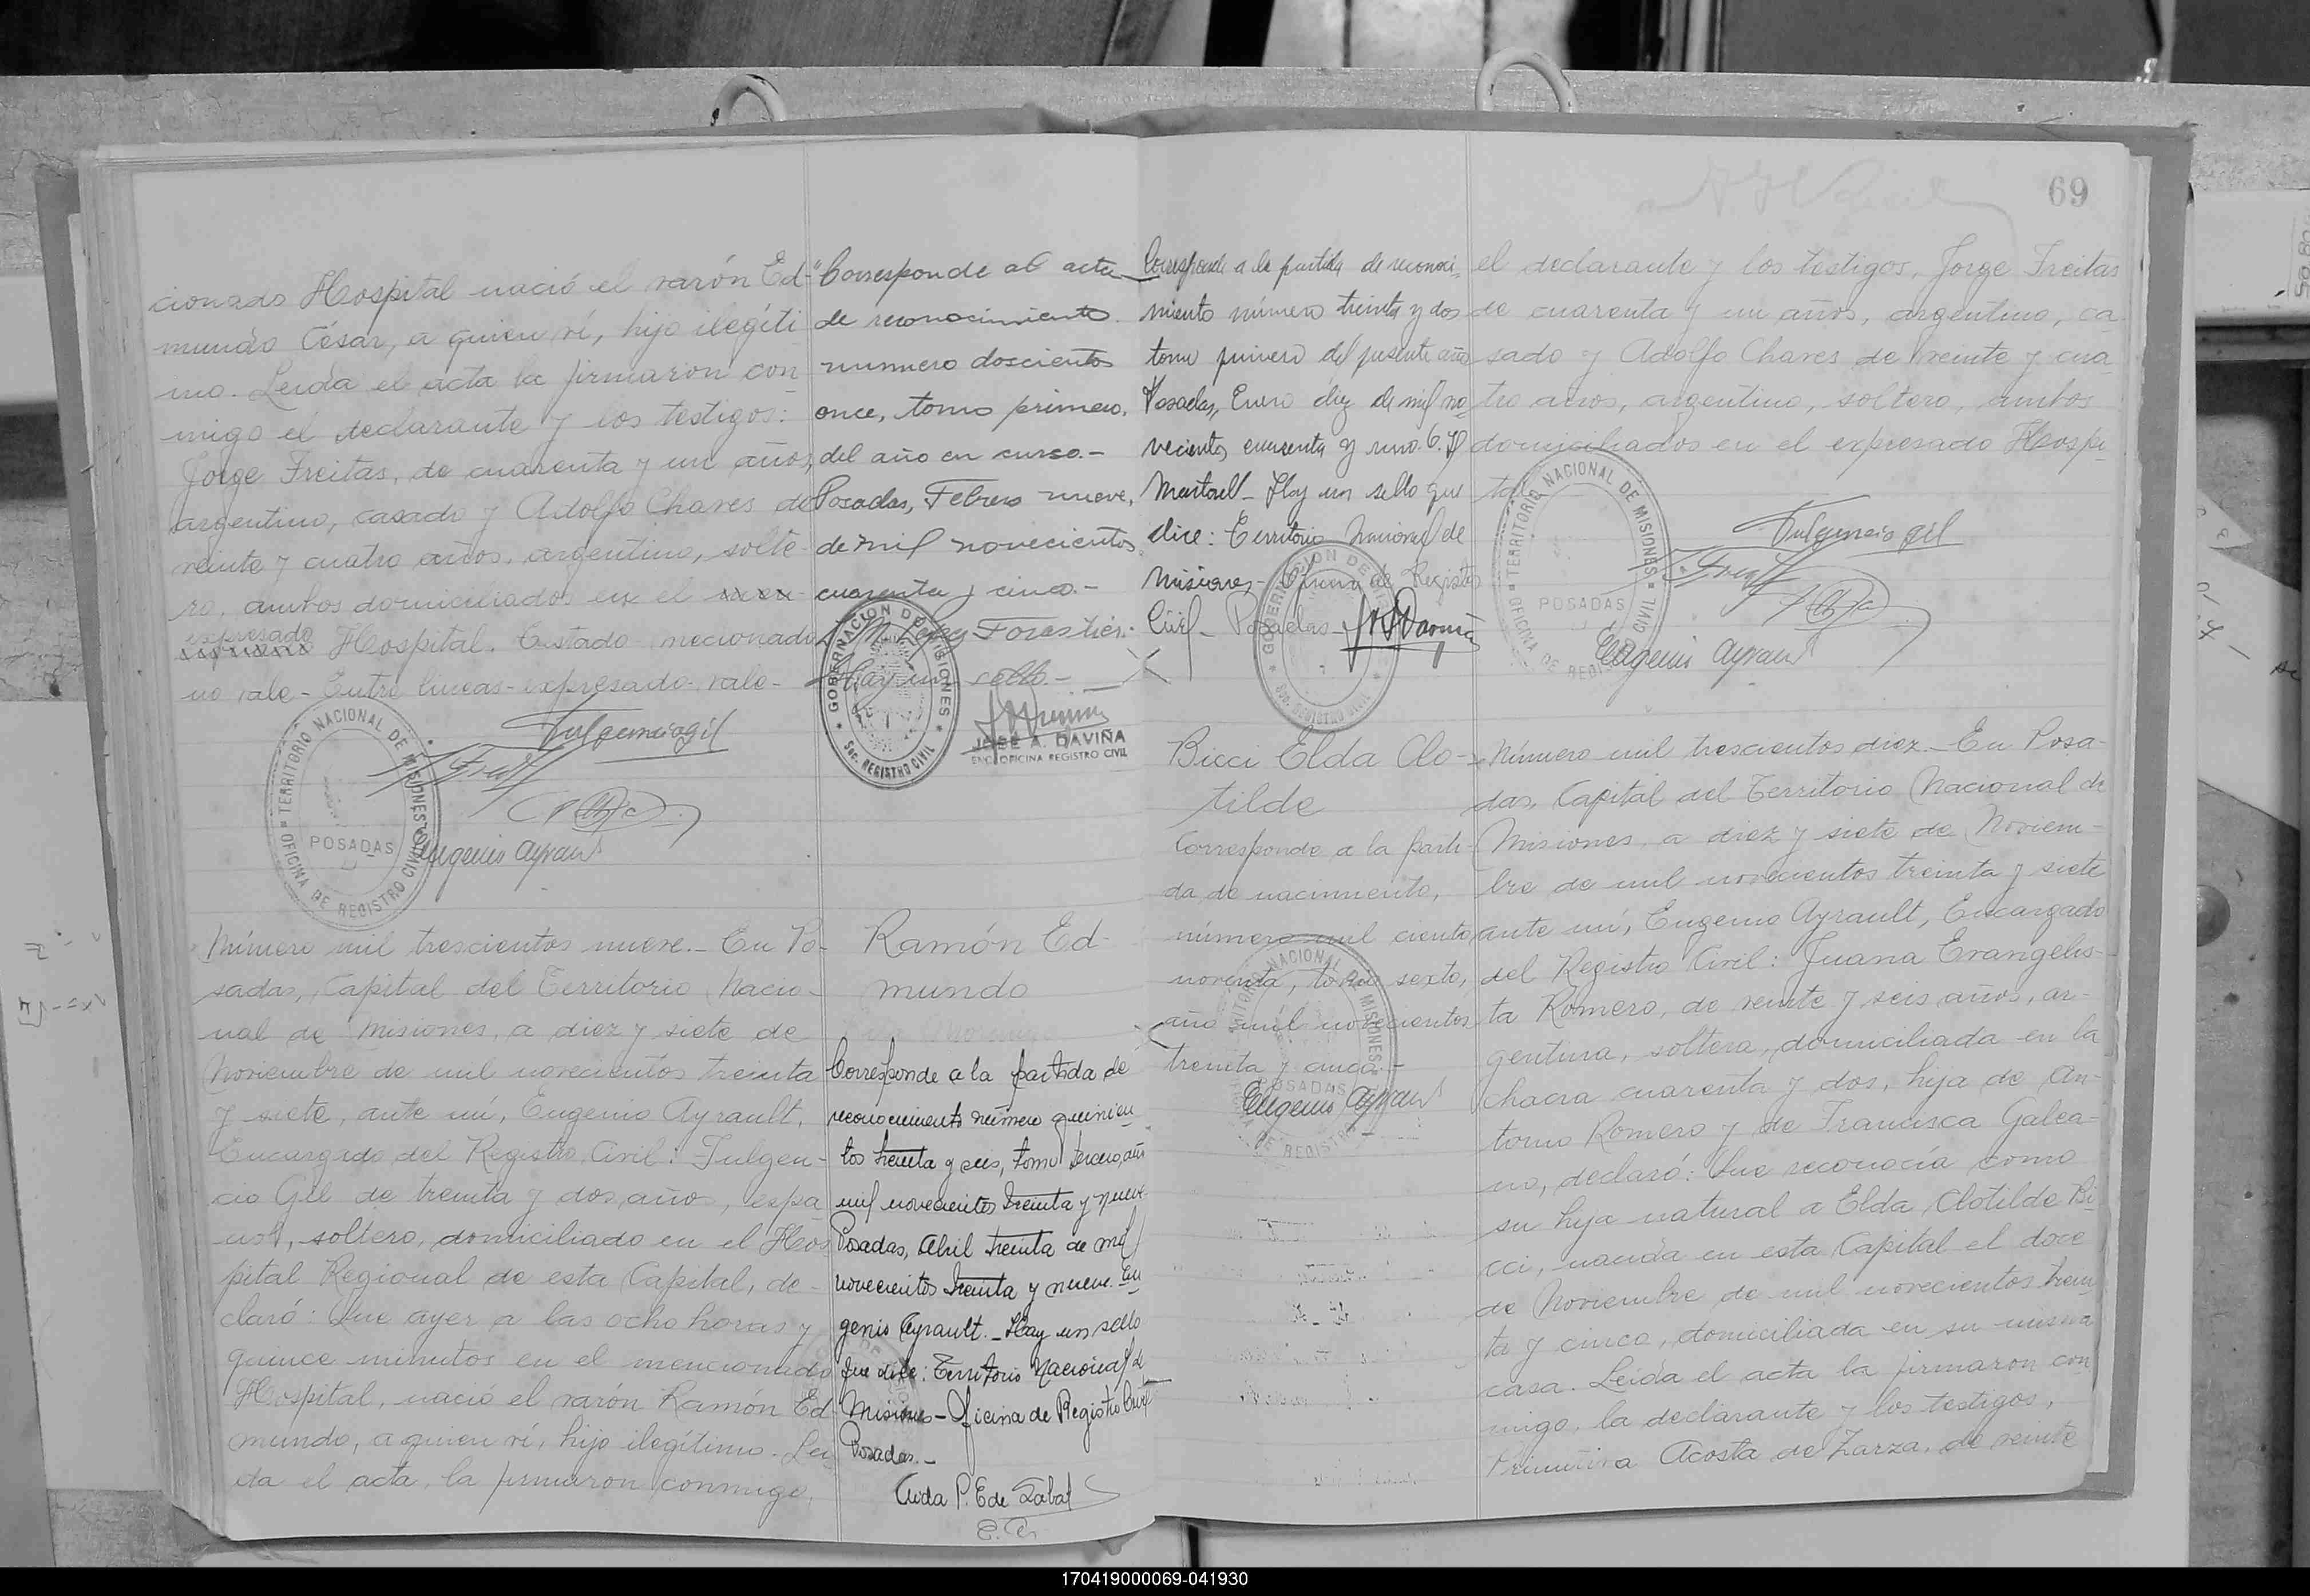 cionado Hospital nació el varón Ed-
mundo César, a quien ví, hijo ilegíti
mo. Leída el acta la firmaron con
migo el declarante y los testigos:
Jorge Freitas, de cuarenta y un años,
argentino, casado y Adolfo Chaves de
veinte y cuatro años, argentino, solte
ro, ambos domiciliados en el
expresado Hospital. Testado mecionado
no vale - Entre líneas - expresado - vale -
Fulgencio gil
TERRITORIO NACIONAL DE MISIONES
POSADAS
OFICINA DE REGISTRO CIVIL
Eugenio Ayrault
Número mil trescientos nueve. - En Po-
sadas, Capital del Territorio Nacio-
nal de Misiones, a diez y siete de
Noviembre de mil novecientos treinta
y siete, ante mí, Eugenio Ayrault,
Encargado del Registro Civil: Fulgen-
cio Gil de treinta y dos años, espa
ñol, soltero, domiciliado en el Hos
pital Regional de esta Capital, de-
claró: Que ayer a las ocho horas y
quince minutos en el mencionado
Hospital, nació el varón Ramón Ed-
mundo, a quien ví, hijo ilegítimo. Leí
da el acta, la firmaron conmigo,
"Corresponde al acta
de reconocimiento
numero doscientos
once, tomo primero,
del año en curso.-
Posadas, Febrero nueve,
de mil novecientos
cuarenta y cinco.-
M. López Forastier.-
Hay un sello.-
GOBERNACION DE MISIONES
Sec. REGISTRO CIVIL
JOSE A. DAVIÑA
ENC. OFICINA REGISTRO CIVIL
Ramón Ed-
mundo
Corresponde a la partida de
reconocimiento número quinien
tos treinta y seis, tomo tercero, año
mil novecientos treinta y nueve.
Posadas, Abril treinta de mil
novecientos treinta y nueve. Eu
genio Ayrault. - Hay un sello
que dice: Territorio Nacional de
Misiones - Oficina de Registro Civil
Posadas.-
Corresponde a la partida de reconoci-
miento número treinta y dos
tomo primero del presente año
Posadas, Enero diez de mil no-
vecientos cuarenta y uno.
Martorell - Hay un sello que
dice: Territorio Nacional de
Misiones - Oficina de Registro
Civil - Posadas -
GOBERNACION DE
Sec. REGISTRO CIVIL
Bicci Elda Clo-
tilde
Corresponde a la parti-
da de nacimiento,
número mil ciento
noventa, tomo sexto,
año mil novecientos
treinta y cinco.-
NACIONAL DE MISIONES
POSADAS
DE REGISTRO
Eugenio Ayrault
69
el declarante y los testigos, Jorge Freitas
de cuarenta y un años, argentino, ca
sado y Adolfo Chaves de veinte y cua
tro años, argentino, soltero, ambos
domiciliados en el expresado Hospi
tal.
TERRITORIO NACIONAL DE MISIONES
POSADAS
OFICINA DE REGISTRO CIVIL
Fulgencio gil
Eugenio Ayrault
Número mil trescientos diez. - En Posa-
das, Capital del Territorio Nacional de
Misiones, a diez y siete de Noviem-
bre de mil novecientos treinta y siete
ante mí, Eugenio Ayrault, Encargado
del Registro Civil: Juana Evangelis-
ta Romero, de veinte y seis años, ar-
gentina, soltera, domiciliada en la
chacra cuarenta y dos, hija de An-
tonio Romero y de Francisca Galea-
no, declaró: Que reconocía como
su hija natural a Elda Clotilde Bi
cci, nacida en esta Capital el doce
de Noviembre de mil novecientos trein
ta y cinco, domiciliada en su misma
casa. Leída el acta la firmaron con
migo, la declarante y los testigos,
Primitiva Acosta de Zarza, de veinte
170419000069-041930